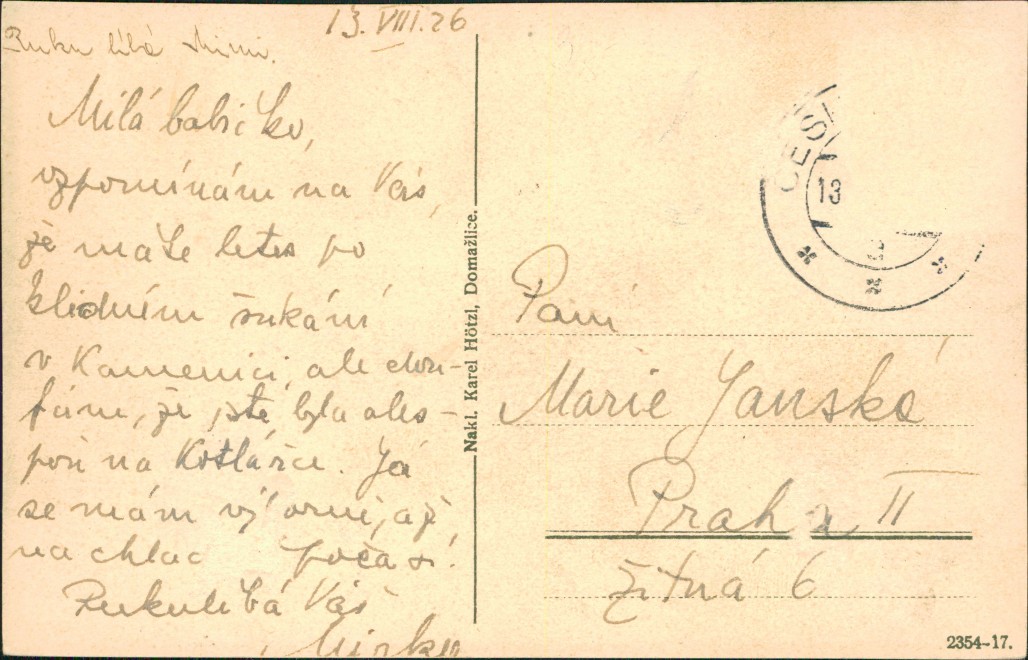 13. VIII. 26
Ruku líbá Mimi.
Milá babičko,
vzpomínám na Vás,
že máte letos po
klidném šukání
v Kamenici, ale dou-
fám, že jste byla ales-
poň na Kotlářce. Já
se mám výborně, až
na chlad počasí.
Ruku líbá Váš
Mirko
Nakl. Karel Hötzl, Domažlice.
ČESK
13
Paní
Marie Janská
Praha II
Žitná 6
2354-17.